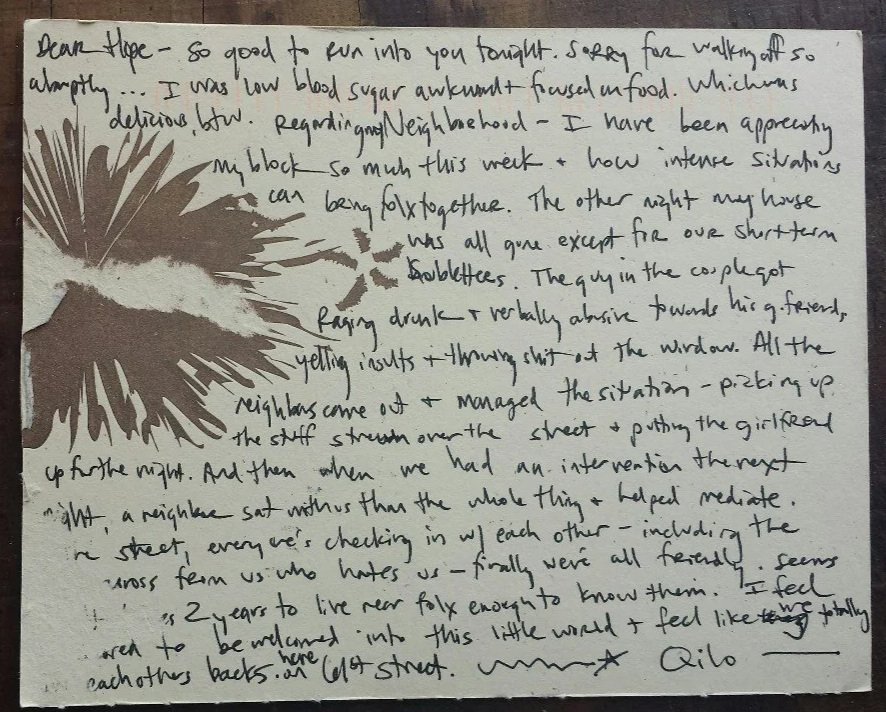 Dear Hope – So good to run into you tonight. Sorry for walking off so
abruptly ... I was low blood sugar awkward + focused on food. Which was
delicious, btw. Regarding my Neighborhood – I have been appreciating
my block so much this week + how intense situations
can bring folx together. The other night my house
was all gone except for our short term
subletters. The guy in the couple got
Raging drunk + verbally abusive towards his g.friend,
yelling insults + throwing shit out the window. All the
neighbors came out + managed the situation – picking up
the stuff strewn over the street + putting the girlfriend
up for the night. And then when we had an intervention the next
ght, a neighbor sat with us than the whole thing + helped mediate.
street, everyone's checking in w/ each other – including the
cross from us who hates us – finally we're all friendly. Seems
2 years to live near folx enough to know them. I feel
ored to be welcomed into this little world + feel like we totally
each others backs. here on 61st street. Qilo